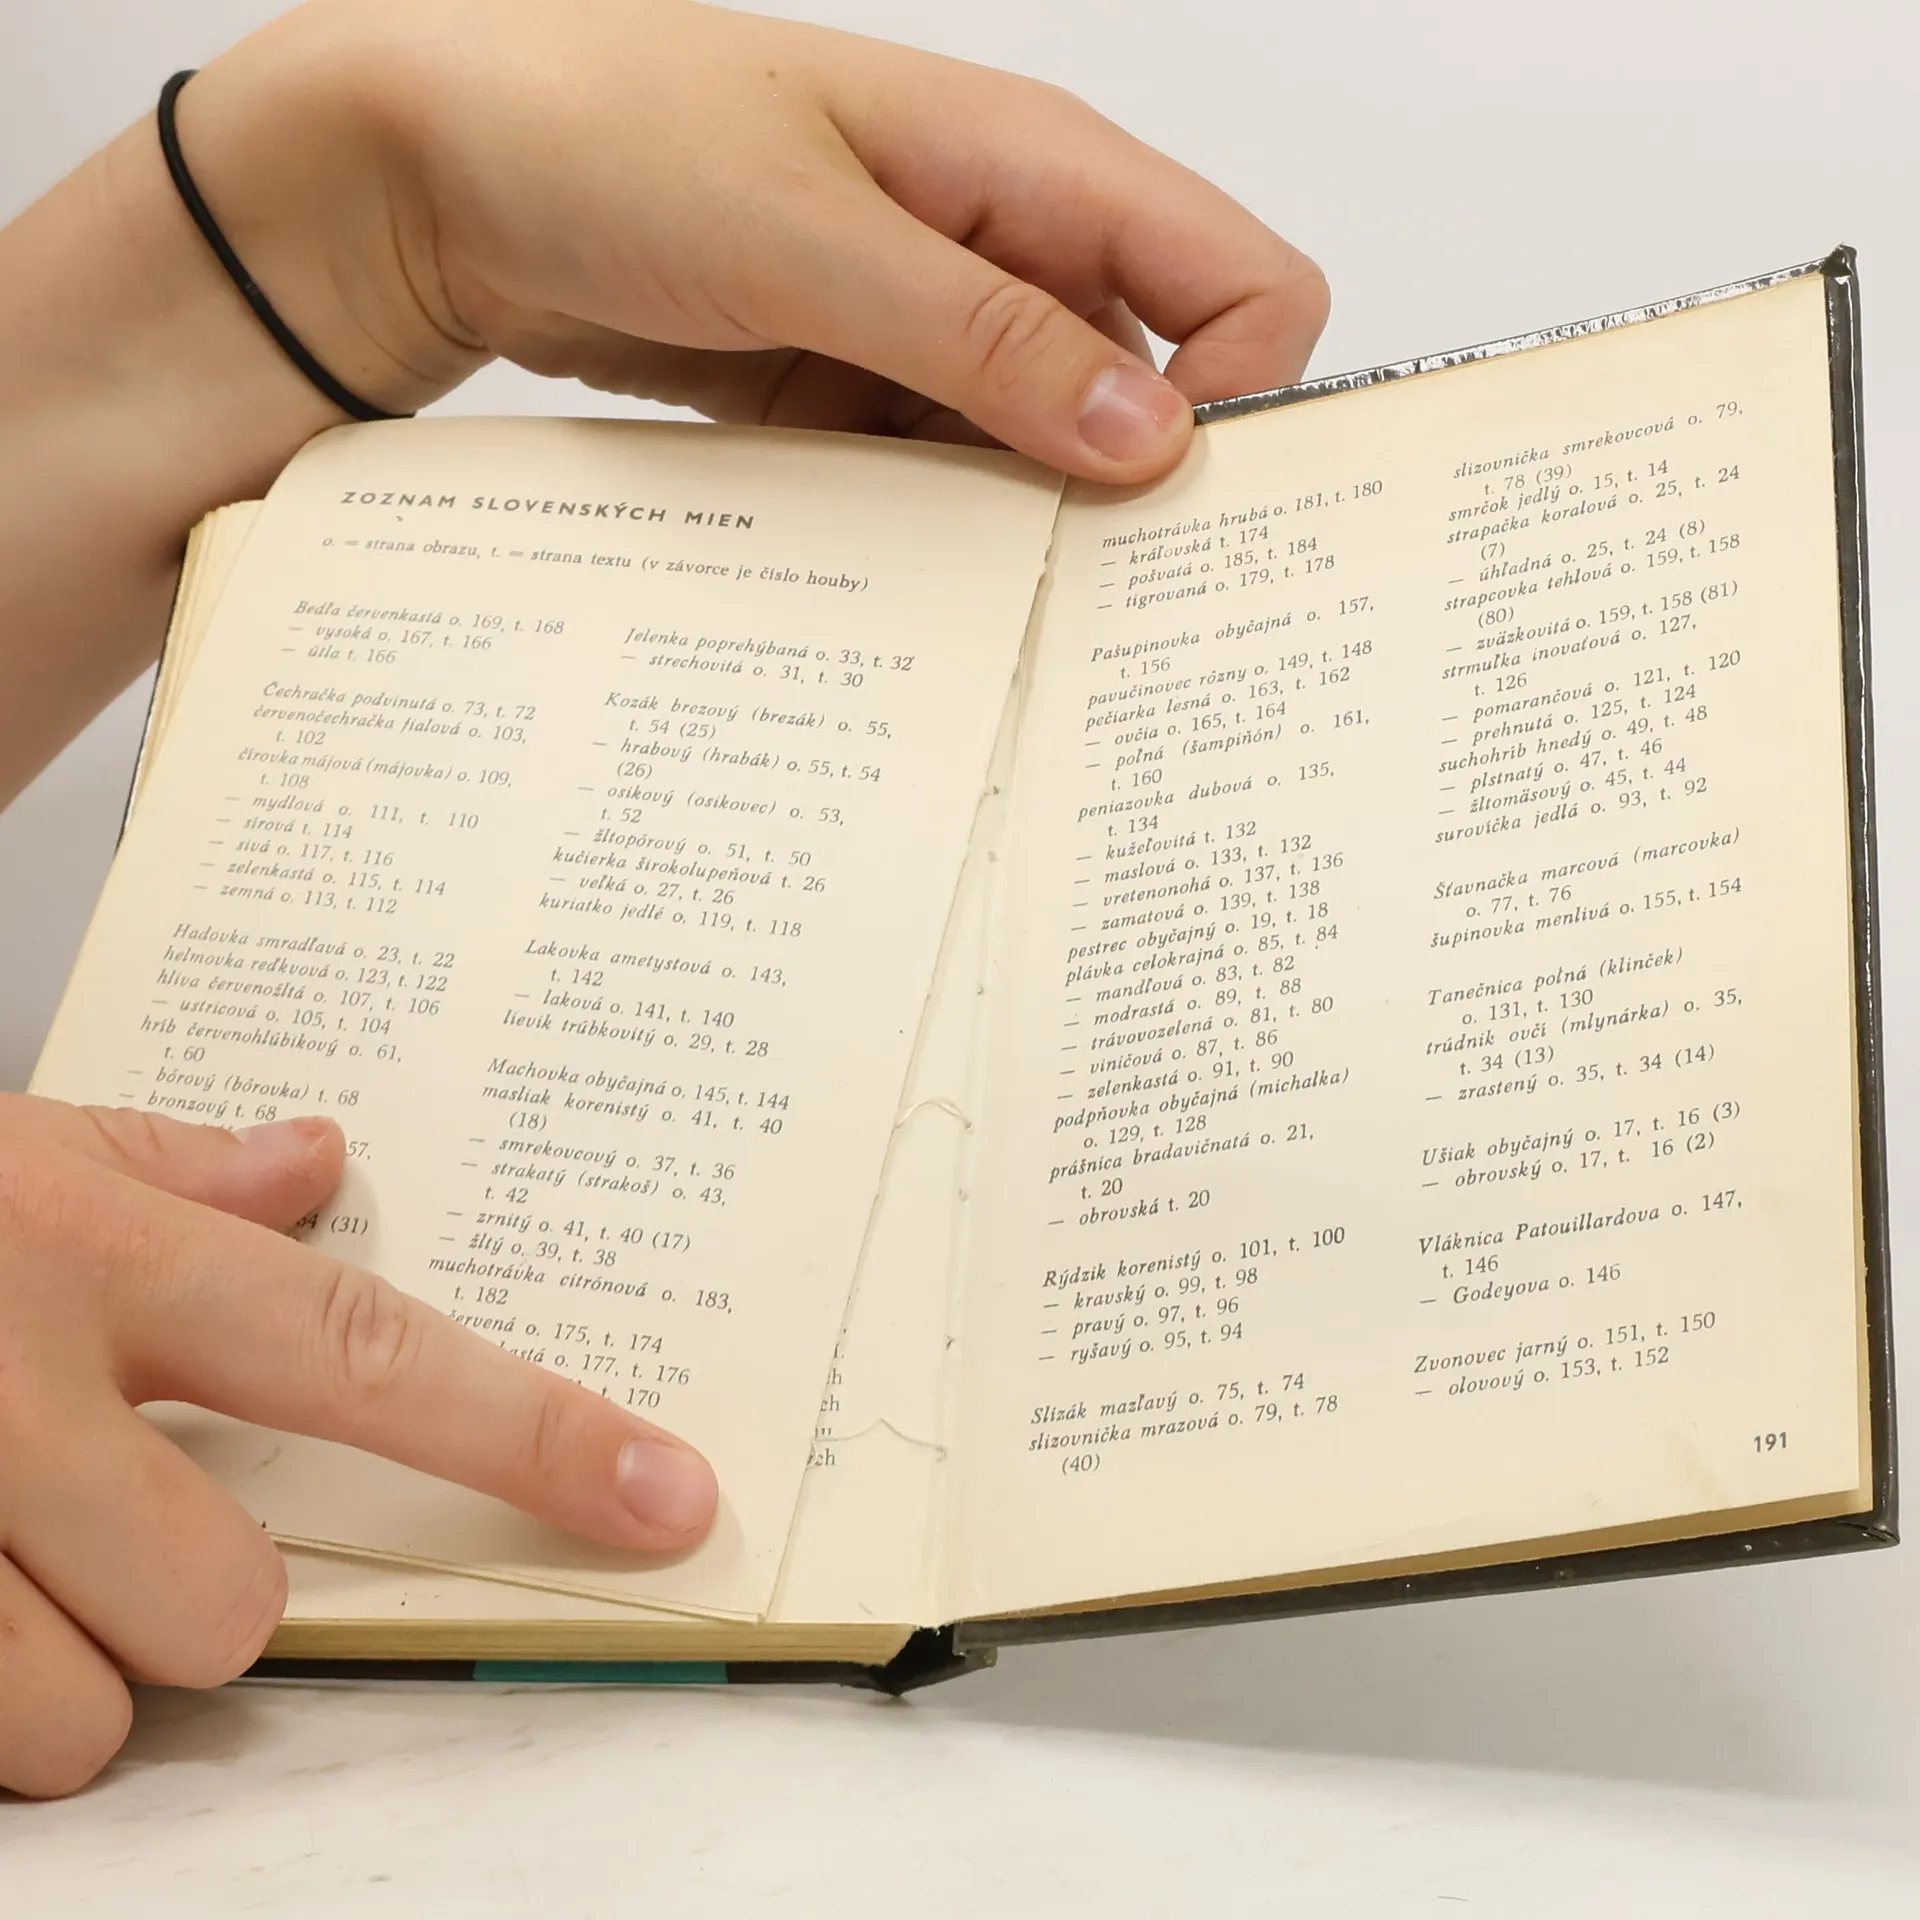 ZOZNAM SLOVENSKÝCH MIEN
o. = strana obrazu, t. = strana textu (v závorce je číslo houby)
Bedľa červenkastá o. 169, t. 168
— vysoká o. 167, t. 166
— útla t. 166
Čechračka podvinutá o. 73, t. 72
červenočechračka fialová o. 103,
t. 102
čírovka májová (májovka) o. 109,
t. 108
— mydlová o. 111, t. 110
— sírová t. 114
— sivá o. 117, t. 116
— zelenkastá o. 115, t. 114
— zemná o. 113, t. 112
Hadovka smradľavá o. 23, t. 22
helmovka reďkvová o. 123, t. 122
hliva červenožltá o. 107, t. 106
— ustricová o. 105, t. 104
hríb červenohlúbikový o. 61,
t. 60
— bôrový (bôrovka) t. 68
— bronzový t. 68
57,
(31)
Jelenka poprehýbaná o. 33, t. 32
— strechovitá o. 31, t. 30
Kozák brezový (brezák) o. 55,
t. 54 (25)
— hrabový (hrabák) o. 55, t. 54
(26)
— osikový (osikovec) o. 53,
t. 52
— žltopórový o. 51, t. 50
kučierka širokolupeňová t. 26
— veľká o. 27, t. 26
kuriatko jedlé o. 119, t. 118
Lakovka ametystová o. 143,
t. 142
— laková o. 141, t. 140
lievik trúbkovitý o. 29, t. 28
Machovka obyčajná o. 145, t. 144
masliak korenistý o. 41, t. 40
(18)
— smrekovcový o. 37, t. 36
— strakatý (strakoš) o. 43,
t. 42
— zrnitý o. 41, t. 40 (17)
— žltý o. 39, t. 38
muchotrávka citrónová o. 183,
t. 182
červená o. 175, t. 174
o. 177, t. 176
t. 170
muchotrávka hrubá o. 181, t. 180
— kráľovská t. 174
— pošvatá o. 185, t. 184
— tigrovaná o. 179, t. 178
Pašupinovka obyčajná o. 157,
t. 156
pavučinovec rôzny o. 149, t. 148
pečiarka lesná o. 163, t. 162
— ovčia o. 165, t. 164
— poľná (šampiňón) o. 161,
t. 160
peniazovka dubová o. 135,
t. 134
— kužeľovitá t. 132
— maslová o. 133, t. 132
— vretenonohá o. 137, t. 136
— zamatová o. 139, t. 138
pestrec obyčajný o. 19, t. 18
plávka celokrajná o. 85, t. 84
— mandľová o. 83, t. 82
— modrastá o. 89, t. 88
— trávovozelená o. 81, t. 80
— viničová o. 87, t. 86
— zelenkastá o. 91, t. 90
podpňovka obyčajná (michalka)
o. 129, t. 128
prášnica bradavičnatá o. 21,
t. 20
— obrovská t. 20
Rýdzik korenistý o. 101, t. 100
— kravský o. 99, t. 98
— pravý o. 97, t. 96
— ryšavý o. 95, t. 94
Slizák mazľavý o. 75, t. 74
slizovnička mrazová o. 79, t. 78
(40)
slizovnička smrekovcová o. 79,
t. 78 (39)
smrčok jedlý o. 15, t. 14
strapačka koralová o. 25, t. 24
(7)
— úhľadná o. 25, t. 24 (8)
strapcovka tehlová o. 159, t. 158
(80)
— zväzkovitá o. 159, t. 158 (81)
strmuľka inovaťová o. 127,
t. 126
— pomarančová o. 121, t. 120
— prehnutá o. 125, t. 124
suchohríb hnedý o. 49, t. 48
— plstnatý o. 47, t. 46
— žltomäsový o. 45, t. 44
surovička jedlá o. 93, t. 92
Šťavnačka marcová (marcovka)
o. 77, t. 76
šupinovka menlivá o. 155, t. 154
Tanečnica poľná (klinček)
o. 131, t. 130
trúdnik ovčí (mlynárka) o. 35,
t. 34 (13)
— zrastený o. 35, t. 34 (14)
Ušiak obyčajný o. 17, t. 16 (3)
— obrovský o. 17, t. 16 (2)
Vláknica Patouillardova o. 147,
t. 146
— Godeyova o. 146
Zvonovec jarný o. 151, t. 150
— olovový o. 153, t. 152
191